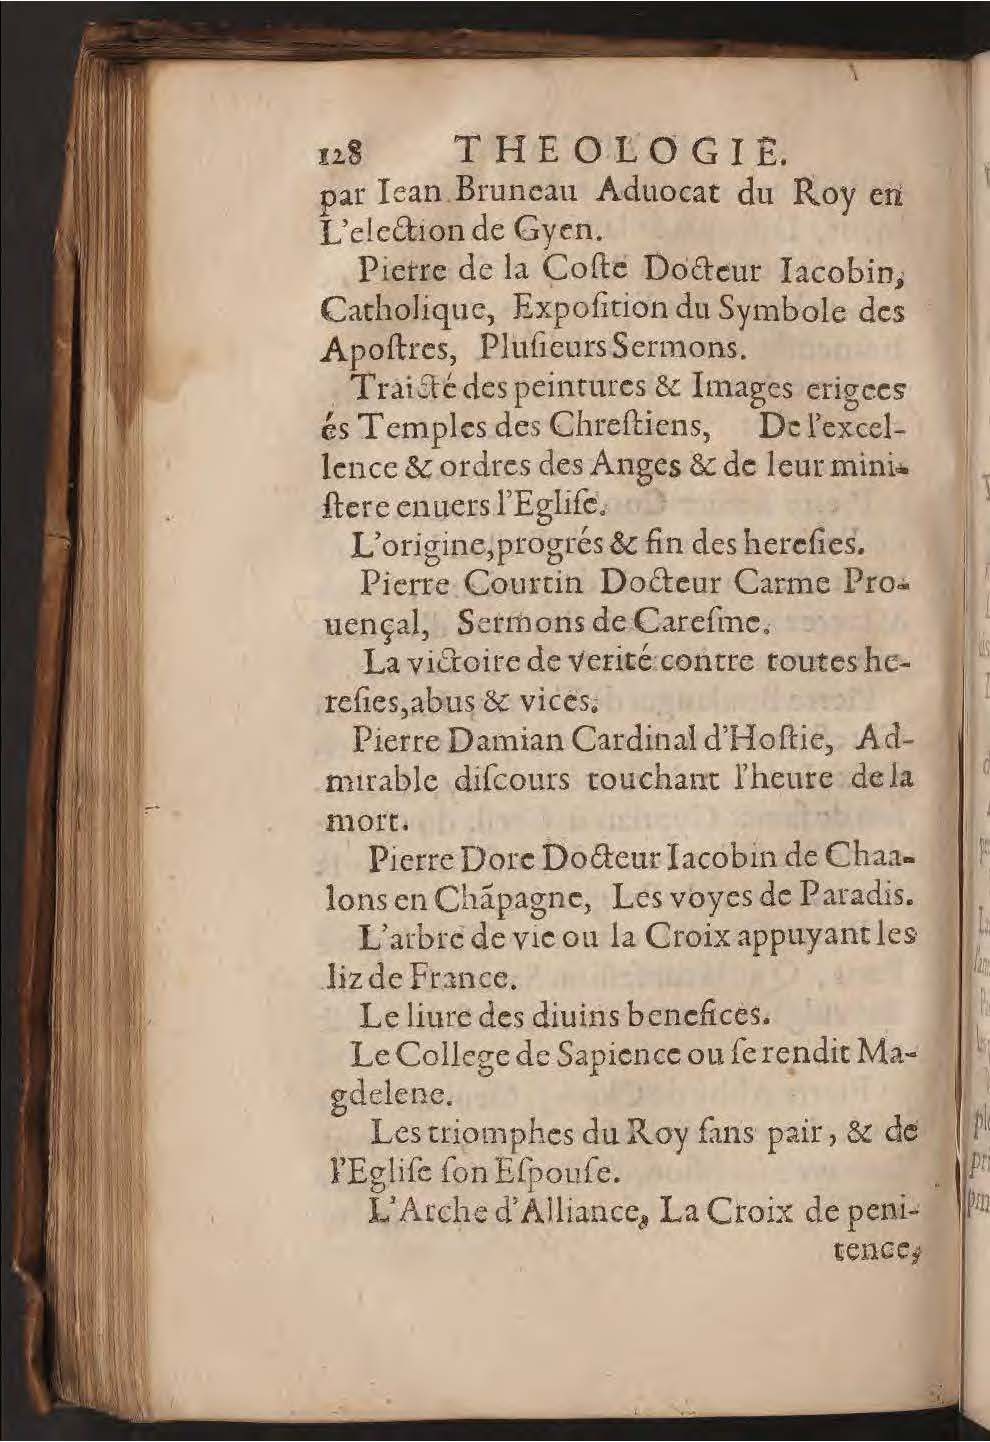 128 THEOLOGIE.
par Iean Bruneau Aduocat du Roy en
L'election de Gyen.
Pierre de la Coſte Docteur Iacobin,
Catholique, Expoſition du Symbole des
Apoſtres, Pluſieurs Sermons.
Traicté des peintures & Images erigees
és Temples des Chreſtiens, De l'excel-
lence & ordres des Anges & de leur mini-
ſtere enuers l'Egliſe.
L'origine, progrés & fin des hereſies.
Pierre Courtin Docteur Carme Pro-
uençal, Sermons de Careſme.
La victoire de verité contre toutes he-
reſies, abus & vices.
Pierre Damian Cardinal d'Hoſtie, Ad-
mirable diſcours touchant l'heure de la
mort.
Pierre Dore Docteur Iacobin de Chaa-
lons en Chãpagne, Les voyes de Paradis.
L'arbre de vie ou la Croix appuyant les
liz de France.
Le liure des diuins benefices.
Le College de Sapience ou ſe rendit Ma-
gdelene.
Les triomphes du Roy ſans pair, & de
l'Egliſe ſon Eſpouſe.
L'Arche d'Alliance, La Croix de peni-
tence,